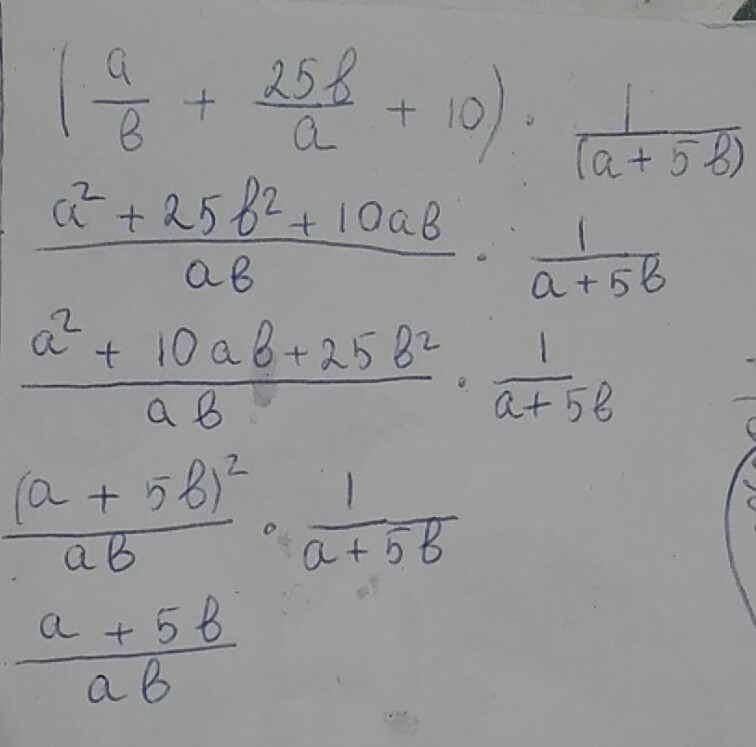 (a/b + 25b/a + 10) · 1/(a + 5b)
(a² + 25b² + 10ab)/(ab) · 1/(a + 5b)
(a² + 10ab + 25b²)/(ab) · 1/(a + 5b)
(a + 5b)²/(ab) · 1/(a + 5b)
(a + 5b)/(ab)